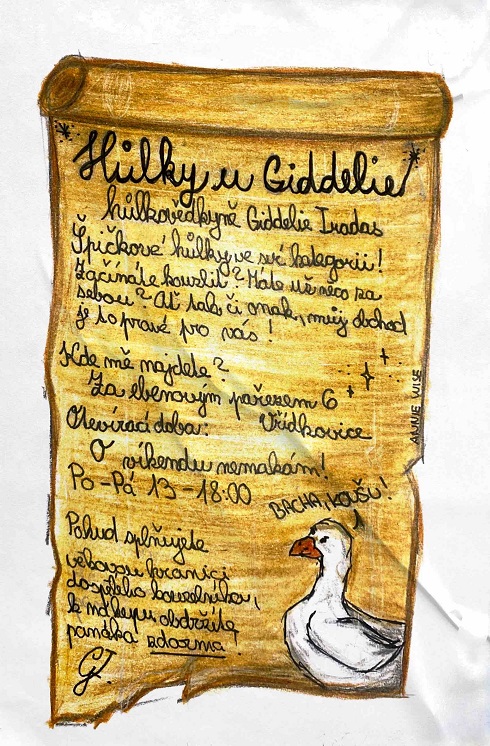 Hůlky u Giddelie
hůlkovědkyně Giddelie Iradas
Špičkové hůlky ve své kategorii!
Začínáte kouzlit? Máte už něco za
sebou? Ať tak či onak, můj obchod
je to pravé pro vás!
Kde mě najdete?
Za ebenovým pařezem 6
Vřídkovice
Otevírací doba:
O víkendu nemakám!
Po-Pá 13-18:00
BACHA, KOUŠU!
Pokud splňujete
věkovou hranici
dospělého kouzelníka,
k nákupu obdržíte
panáka zdarma!
GI
ANNIE WISE